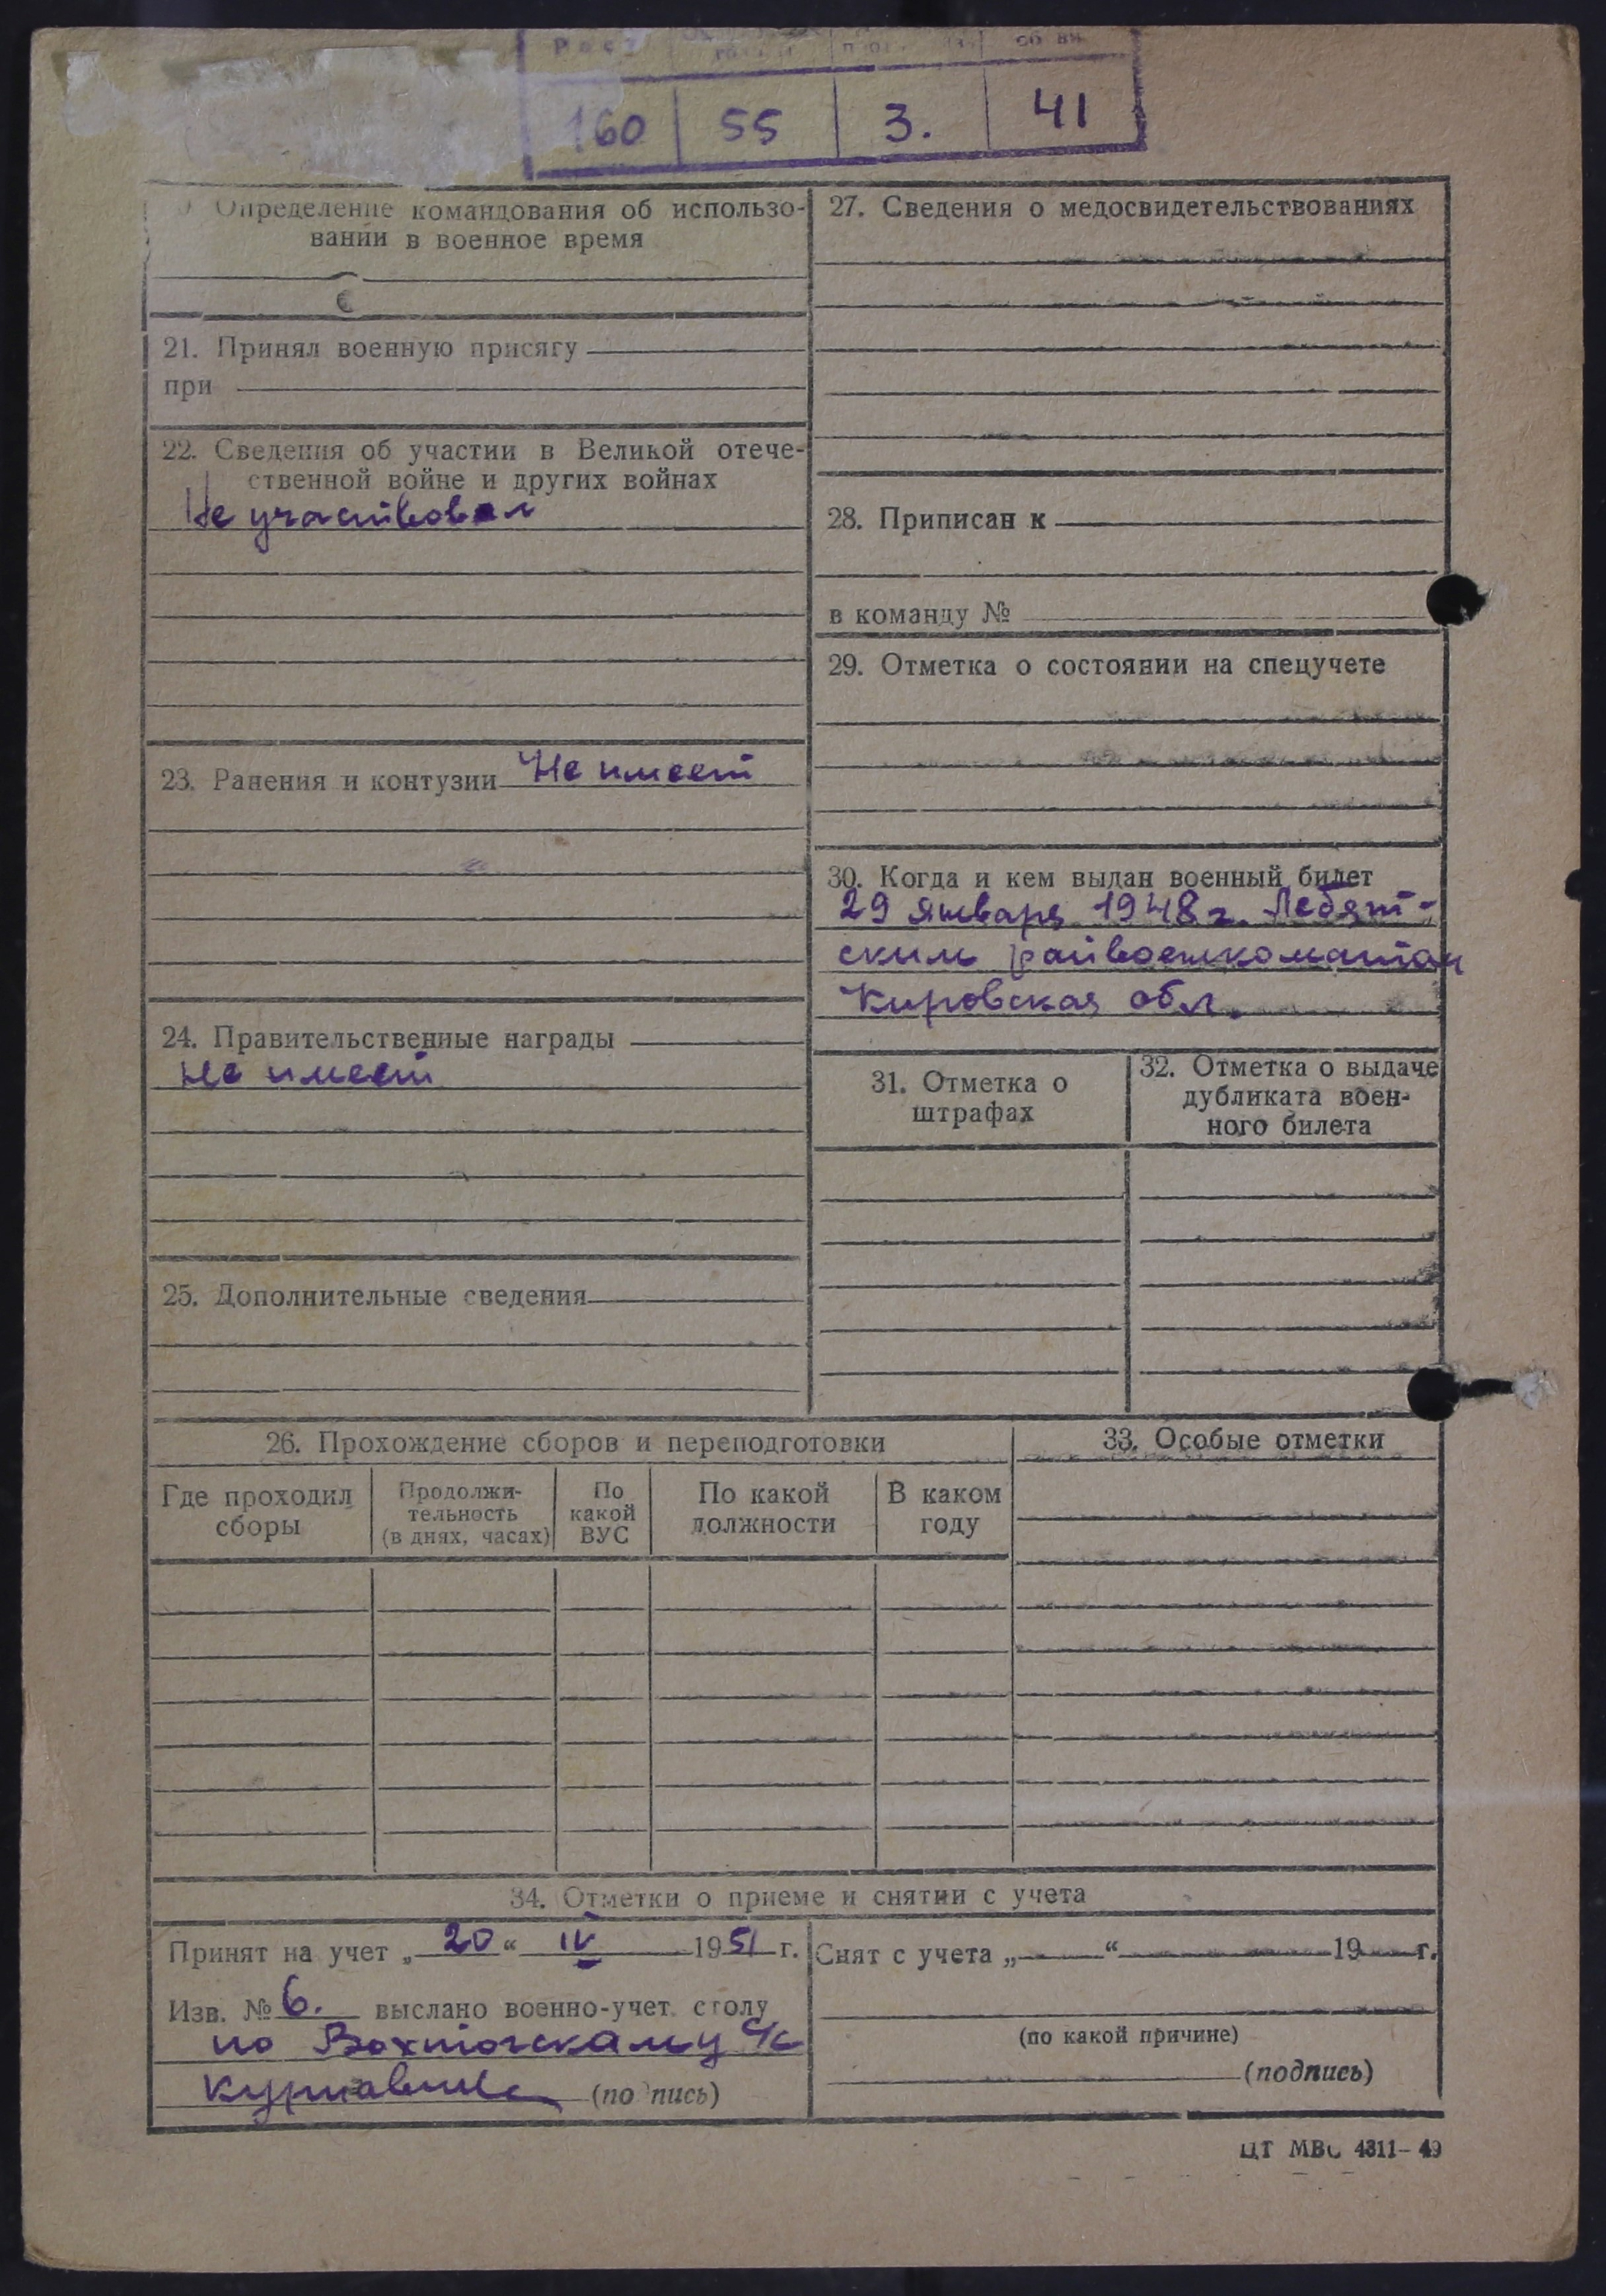 Рост
160 55 3. 41
Определение командования об использо-
вании в военное время
21. Принял военную присягу
при
22. Сведения об участии в Великой отече-
ственной войне и других войнах
Не участвовал
23. Ранения и контузии Не имеет
24. Правительственные награды
Не имеет
25. Дополнительные сведения
27. Сведения о медосвидетельствованиях
28. Приписан к
в команду №
29. Отметка о состоянии на спецучете
30. Когда и кем выдан военный билет
29 января 1948 г. Лебят-
ским райвоенкоматом
Кировская обл.
31. Отметка о
штрафах
32. Отметка о выдаче
дубликата воен-
ного билета
26. Прохождение сборов и переподготовки
Где проходил
сборы
Продолжи-
тельность
(в днях, часах)
По
какой
ВУС
По какой
должности
В каком
году
33. Особые отметки
34. Отметки о приеме и снятии с учета
Принят на учет „ 20 “ IV 1951 г.
Изв. № 6. выслано военно-учет. столу
по Вохтогскому с/с
(подпись)
Снят с учета „ “ 19 г.
(по какой причине)
(подпись)
ЦТ МВС 4311–49